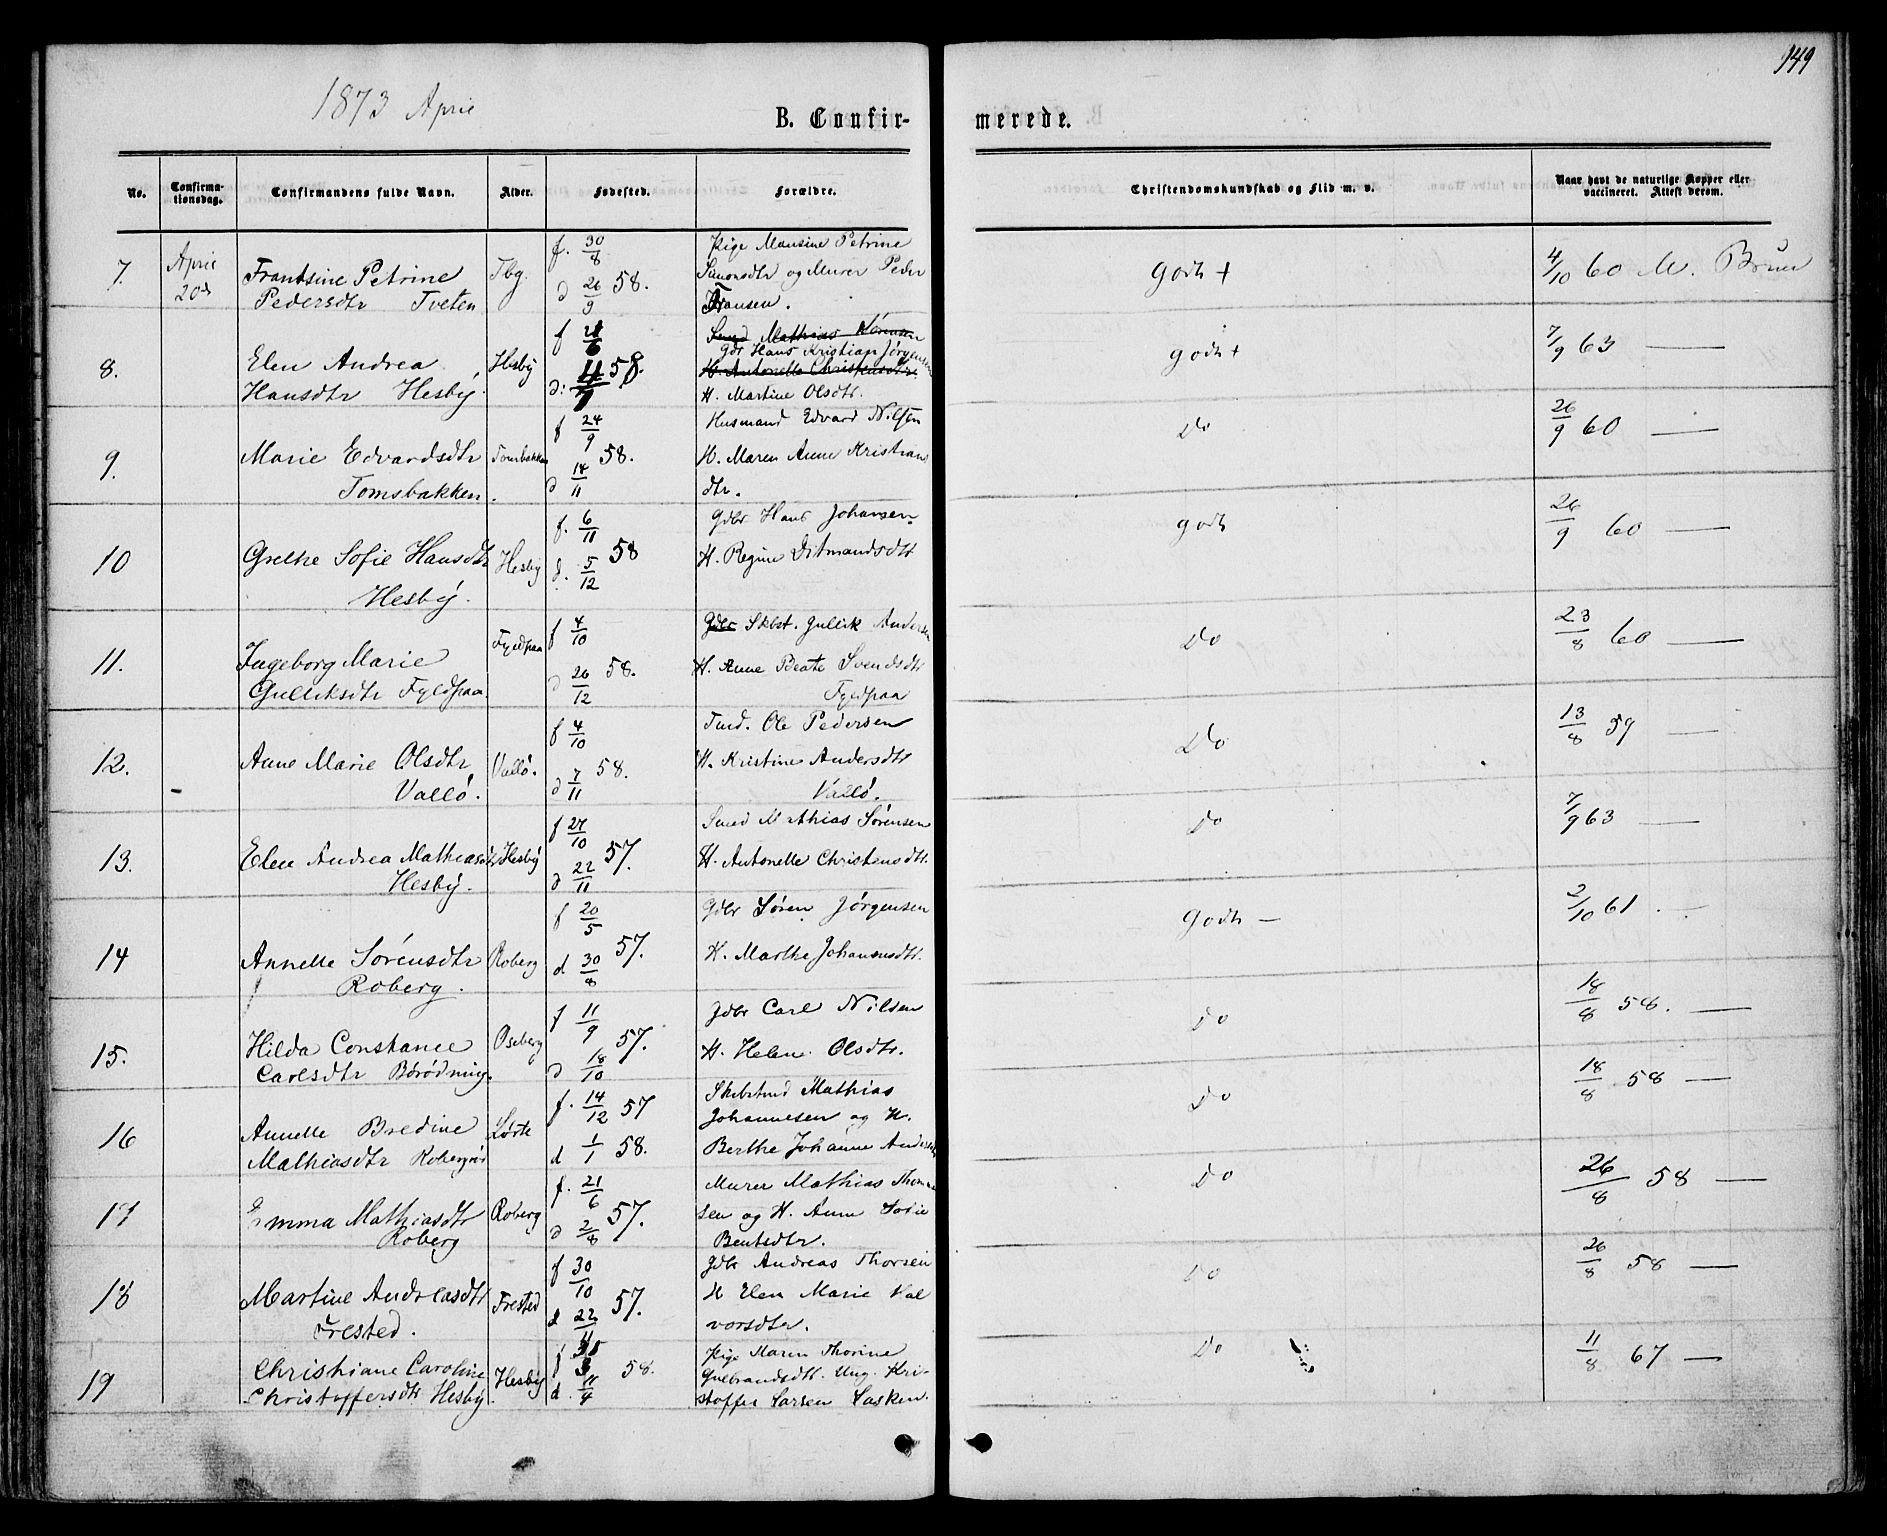 149
1873 April
B. Confir- merede.
No. Confirma-tionsdag. Confirmandens fulde Navn. Alder. Fødested. Forældre. Christendomskundskab og Flid m. v. Naar havt de naturlige Kopper eller vaccineret. Attest derom.
7. April 20de Frantsine Petrine Pedersdtr Tveten Tbg. f. 30/8 d 26/9 58. Pige Mansine Petrine Simonsdtr og Murer Peder Fransen. Godt + 4/10 60 M. Bruu
8. Elen Andrea Hansdtr Hesby. Hesby f 21/6 d: 11/7 58. Smed Mathias Sørensen Gdr Hans Kristian Jørgensen H. Antonette Christensdtr. H. Martine Olsdtr. godt + 7/9 63 —
9. Marie Edvardsdtr Tomsbakken. Tomsbakken f 24/9 d 14/11 58. Husmand Edvard Nilsen H. Maren Anne Kristiansdtr. Do 26/9 60 —
10 Grethe Sofie Hansdtr Hesby. Hesby f. 6/11 d. 5/12 58 Gdbr Hans Johansen. H. Regine Ditmandsdtr godt 26/9 60 —
11. Ingeborg Marie Gulliksdtr Fyldpaa. Fyldpaa f 4/10 d 26/12 58. Gdbr Skbst. Gullik Andersen H. Anne Beate Svendsdtr Fyldpaa Do 23/8 60 —
12. Anne Marie Olsdtr Valló. Valló. f 4/10 d 7/11 58. Tmd. Ole Pedersen H. Kristine Andersdtr Valló. Do 13/8 59 —
13. Elen Andrea Mathiasdtr Hesby. Hesby f 27/10 d 22/11 57. Smed Mathias Sørensen H. Antonette Christensdtr. Do 7/9 63 —
14 Annette Sørensdtr Roberg. Roberg f 20/5 d 30/8 57. Gdbr Søren Jørgensen H. Marthe Johannesdtr. Godt — 2/10 61. —
15. Hilda Constance Carlsdtr Bóródning. Oseberg f 11/9 d 18/10 57. Gdbr Carl Nilsen H. Helene Olsdtr. Do 18/8 58. —
16 Annette Bredine Mathiasdtr f. 14/12 57 d 1/1 58. Mathias Johannesen og H. Berthe Johanne Do 18/8 58 —
17 Emma Mathiasdtr Roberg Roberg f. 21/6 d 2/8 57. Murer Mathias Thommesen og H. Anne Sofie Bentsdtr. Do 26/8 58 —
18 Martine Andreasdtr Frested. Frested f 30/10 d 22/11 57. Gdbr Andreas Thorsen H Elen Marie Halvorsdtr. Do 26/8 58 —
19 Christiane Caroline Christoffersdtr Hesby. Hesby f d. 58. Pige Maren Thorine Gulbrandsdtr. Ung. Kristoffer Larsen Do 11/8 67 —